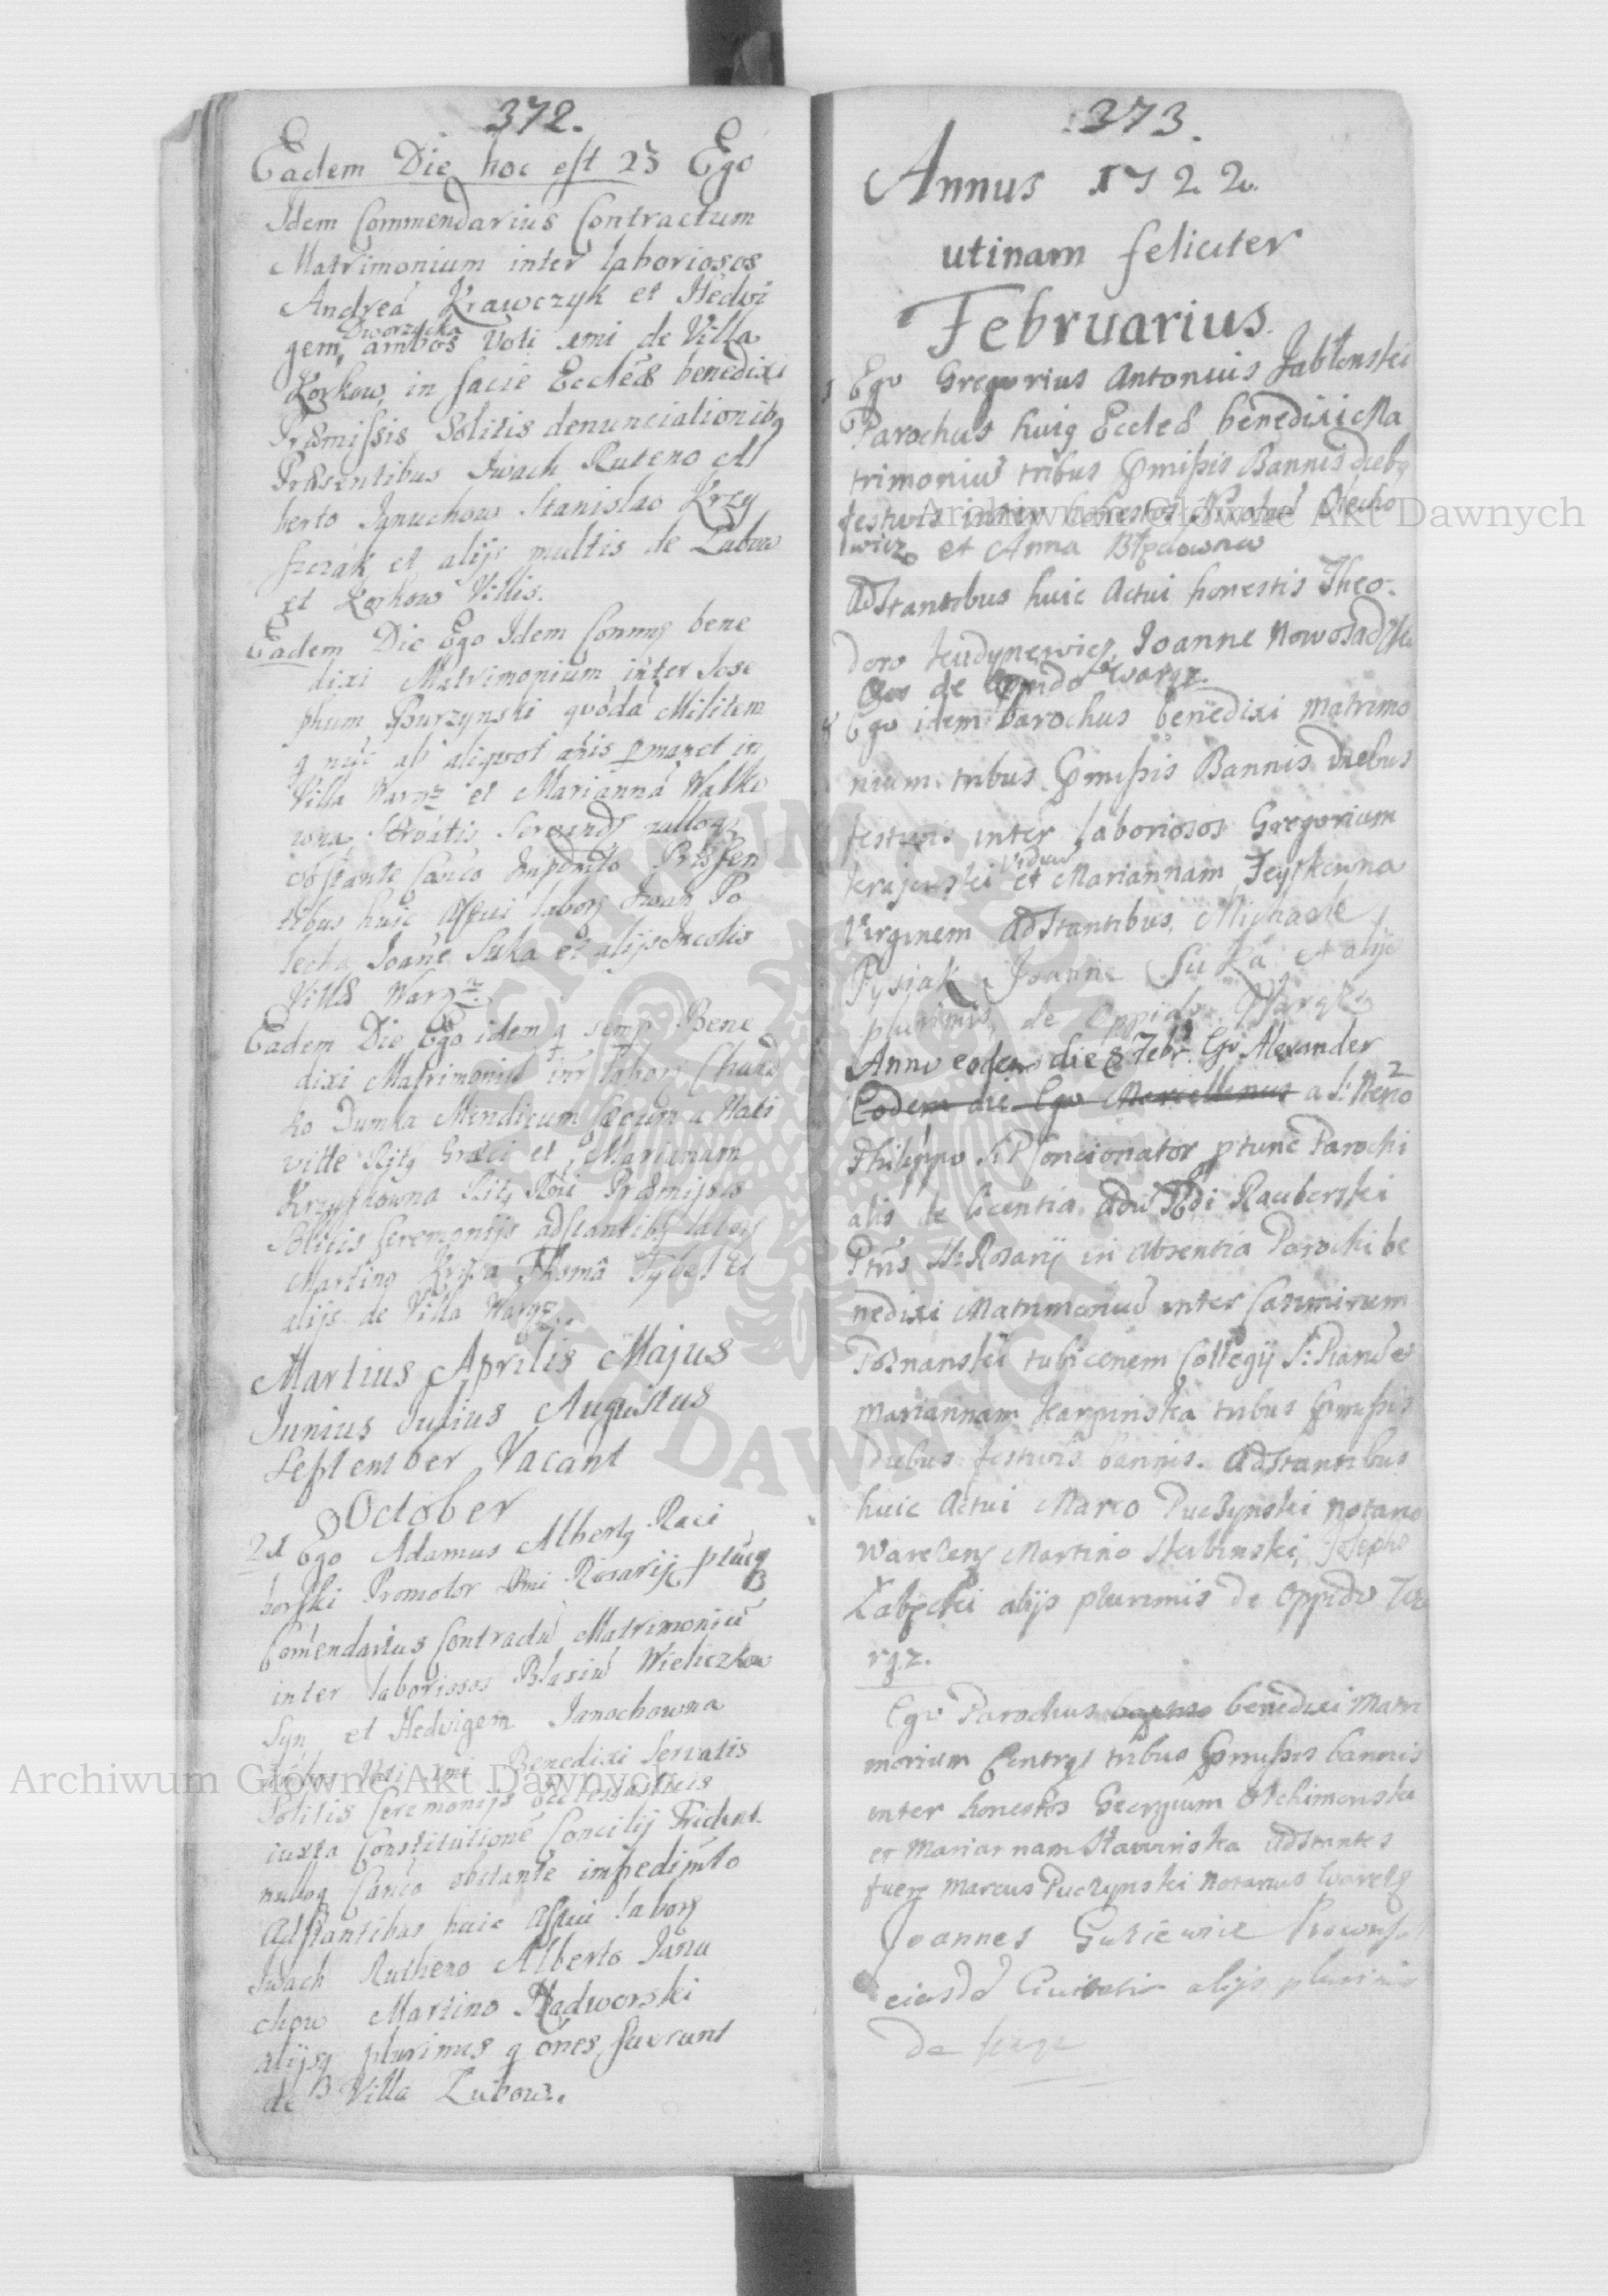 372.
Eadem Die hoc est 23 Ego
Idem Commendarius Contractum
Matrimonium inter laboriosos
Andreá Krawczyk et Hedvi
Dworzycka
gem, ambos Voti 1mi de Villa
Korkow, in facie Eccleæ benedixi
Præmissis Solitis denunciationibq
Præsentibus Iwach Ruteno Al
berto Ignuchow Stanislao Krzy
szczak et alijs multis de Lubow
et Korkow Villis.
Eadem Die Ego Idem Commq bene
dixi Matrimonium inter Jose
phum Burzynski quódá Militem
q núc ab aliquot anis pmanet in
Villa Waręz et Mariánná Walko
wna, Servatis Servandis nulloq
obstante Canco Impdmto Præsen
tibus huic Actui labors Iwan Po
lecha Joáne Suka et alijs Incolis
Villæ Waręz.
Eadem Die Ego idem q semp Bene
dixi Matrimoniú intr labors
ko Dumka Mendicum Cæcum a Nati
vitte Ritq Græci et Mariánam
Krzyskowna Ritq Róni Præmissis
Solitis Ceremonijs adstantibq labors
Martino Thomá et
alijs de Villa Waręz.
Martius Aprilis Majus
Junius Julius Augustus
September Vacant
October
21 Ego Adamus Albertq Raci
borski Promotor Smi Rosarij ptúcq
Coméndarius Contractú Matrimoniú
inter laboriosos Blasiú Wieliczkow
Syn et Hedvigem Janochowna
ambos Voti 1mi Benedixi Servatis
Solitis Ceremonijs Ecclesiasticis
iuxta Constitutioné Concilij Trident
nulloq Canco obstante impedimto
Adstantibus huic Actui labors
Iwach Rutheno Alberto Janu
chow Martino Nadworski
alijsq plurimis q ónes fuerunt
de Villa Lubow.
373.
Annus 1722.
utinam feliciter
Februarius.
Ego Gregorius Antonius Jabłonski
Parochus huiq Eccleæ benedixi Ma
trimoniú tribus pmissis Bannis diebq
festivis inter honestos Olecho
wicz et Anna
Adstantibus huic Actui honestis Theo-
doro Kudynewicz, Joanne Nowosadzki
de Oppido Waręz.
Ego idem Parochus benedixi matrimo
nium tribus pmissis Bannis diebus
festivis inter laboriosos Gregorium
viduú
Krajewski et Mariannam Feyskowna
Virginem Adstantibus Michaele
Pysiak Joanne Suka et alijs
plurimis de Oppido Waręz
Anno eodem die 8 Febr. Ego Alexander
Eodem die Ego Marcellinus a S: Nerio
Philippo S: P Concionator ptunc Parochi
alis de licentia Adm Rdi Raciborski
Ptris S: Rosarij in absentia Parochi be
nedixi Matrimoniú inter Casimirum
Poznanski tubicenem Collegij S: Piarú et
Mariannam Karpinska tribus pmissis
Diebus festivis bannis. Adstantibus
huic Actui Marco Puczynski Notario
Warezenq Martino Skubinski, Josepho
Zabęcki alijs plurimis de Oppido Wa
ręz.
Ego Parochus baptiso benedixi Matri
monium tribus pmissis bannis
inter honestos Georgium Olchimonski
et Mariannam Stawinska Adstantes
fuere Marcus Puczynski Notarius Warezq
Joannes Gutiewicz
eiusdé Civitatis alijs plurimis
Archiwum Główne Akt Dawnych
Archiwum Główne Akt Dawnych
ARCHIWUM GŁÓWNE AKT DAWNYCH